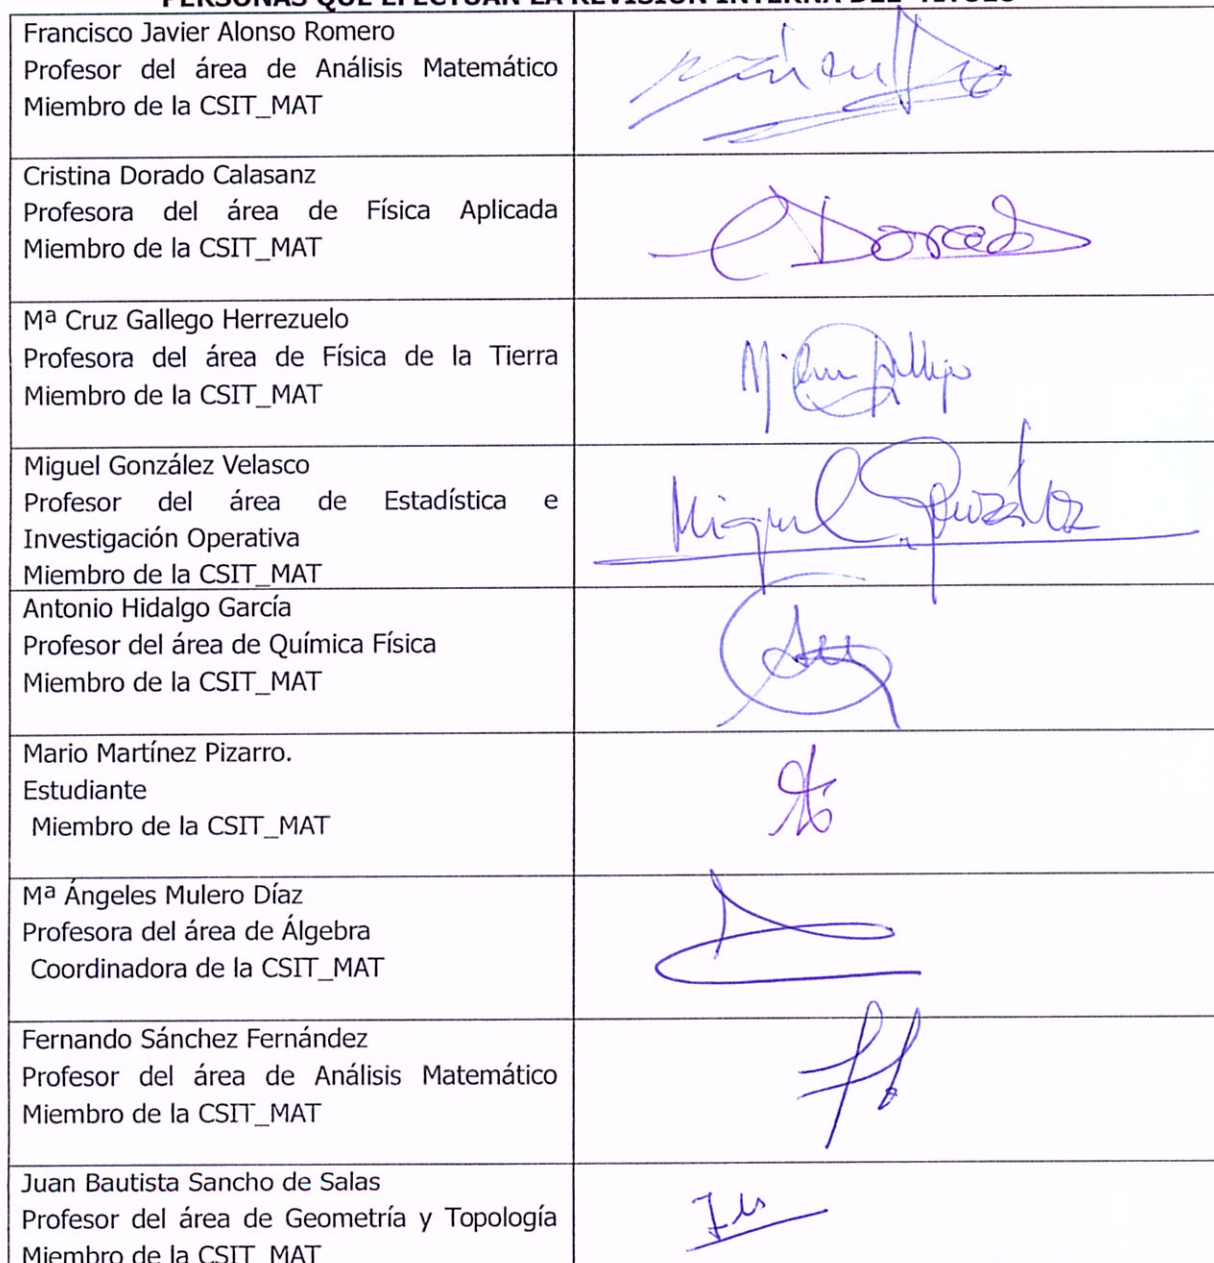 PERSONAS QUE EFECTÚAN LA REVISIÓN INTERNA DEL TÍTULO
Francisco Javier Alonso Romero
Profesor del área de Análisis Matemático
Miembro de la CSIT_MAT
Cristina Dorado Calasanz
Profesora del área de Física Aplicada
Miembro de la CSIT_MAT
C Dorado
Mª Cruz Gallego Herrezuelo
Profesora del área de Física de la Tierra
Miembro de la CSIT_MAT
Miguel González Velasco
Profesor del área de Estadística e
Investigación Operativa
Miembro de la CSIT_MAT
Miguel González
Antonio Hidalgo García
Profesor del área de Química Física
Miembro de la CSIT_MAT
Mario Martínez Pizarro.
Estudiante
Miembro de la CSIT_MAT
Mª Ángeles Mulero Díaz
Profesora del área de Álgebra
Coordinadora de la CSIT_MAT
Fernando Sánchez Fernández
Profesor del área de Análisis Matemático
Miembro de la CSIT_MAT
Juan Bautista Sancho de Salas
Profesor del área de Geometría y Topología
Miembro de la CSIT_MAT